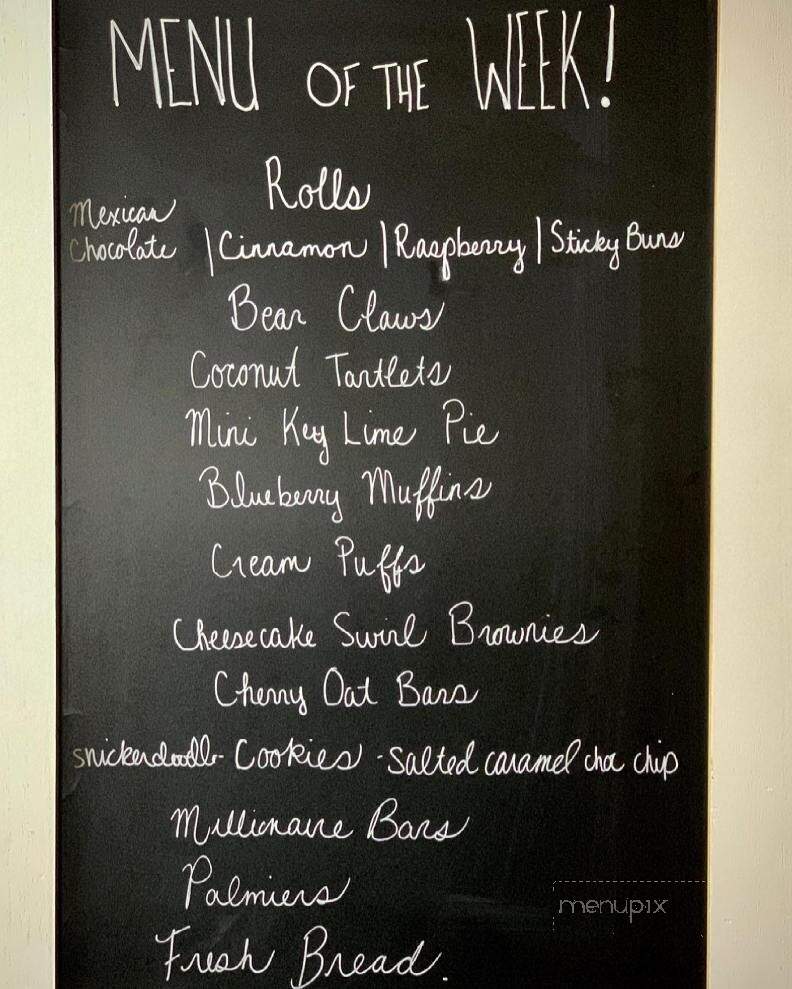 MENU OF THE WEEK!
Rolls
Mexican
Chocolate | Cinnamon | Raspberry | Sticky Buns
Bear Claws
Coconut Tartlets
Mini Key Lime Pie
Blueberry Muffins
Cream Puffs
Cheesecake Swirl Brownies
Cherry Oat Bars
snickerdoodle - Cookies - salted caramel choc chip
Millionaire Bars
Palmiers
Fresh Bread.
menupix